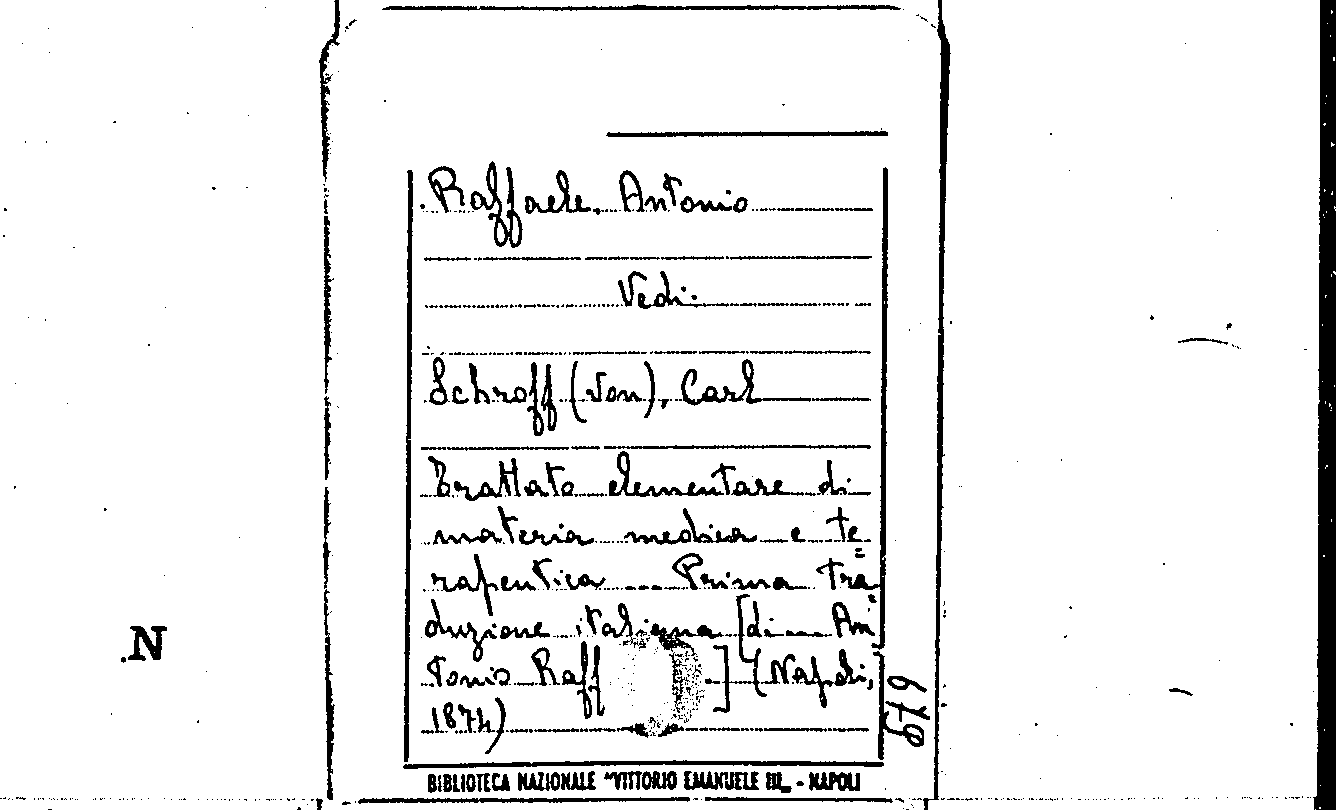 Raffaele, Antonio
Vedi:
Schroff (von), Carl
Trattato elementare di
materia medica e te=
rapeutica ... Prima tra=
duzione italiana [di ... An=
tonio Raff ] (Napoli,
1874)
N
BIBLIOTECA NAZIONALE "VITTORIO EMANUELE III„ - NAPOLI